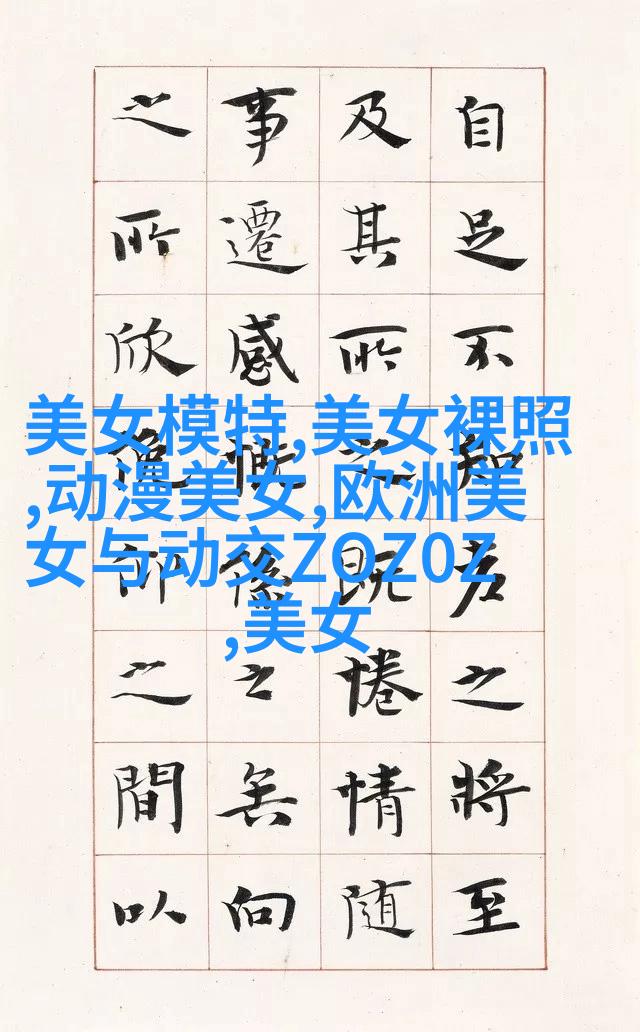 自足不知老之將至
及其所之既惓情随
事遷感慨係之矣向
之所欣俛仰之間以
美女模特,美女裸照
,动漫美女,欧洲美
女与动交ZOZ0Z
,美女